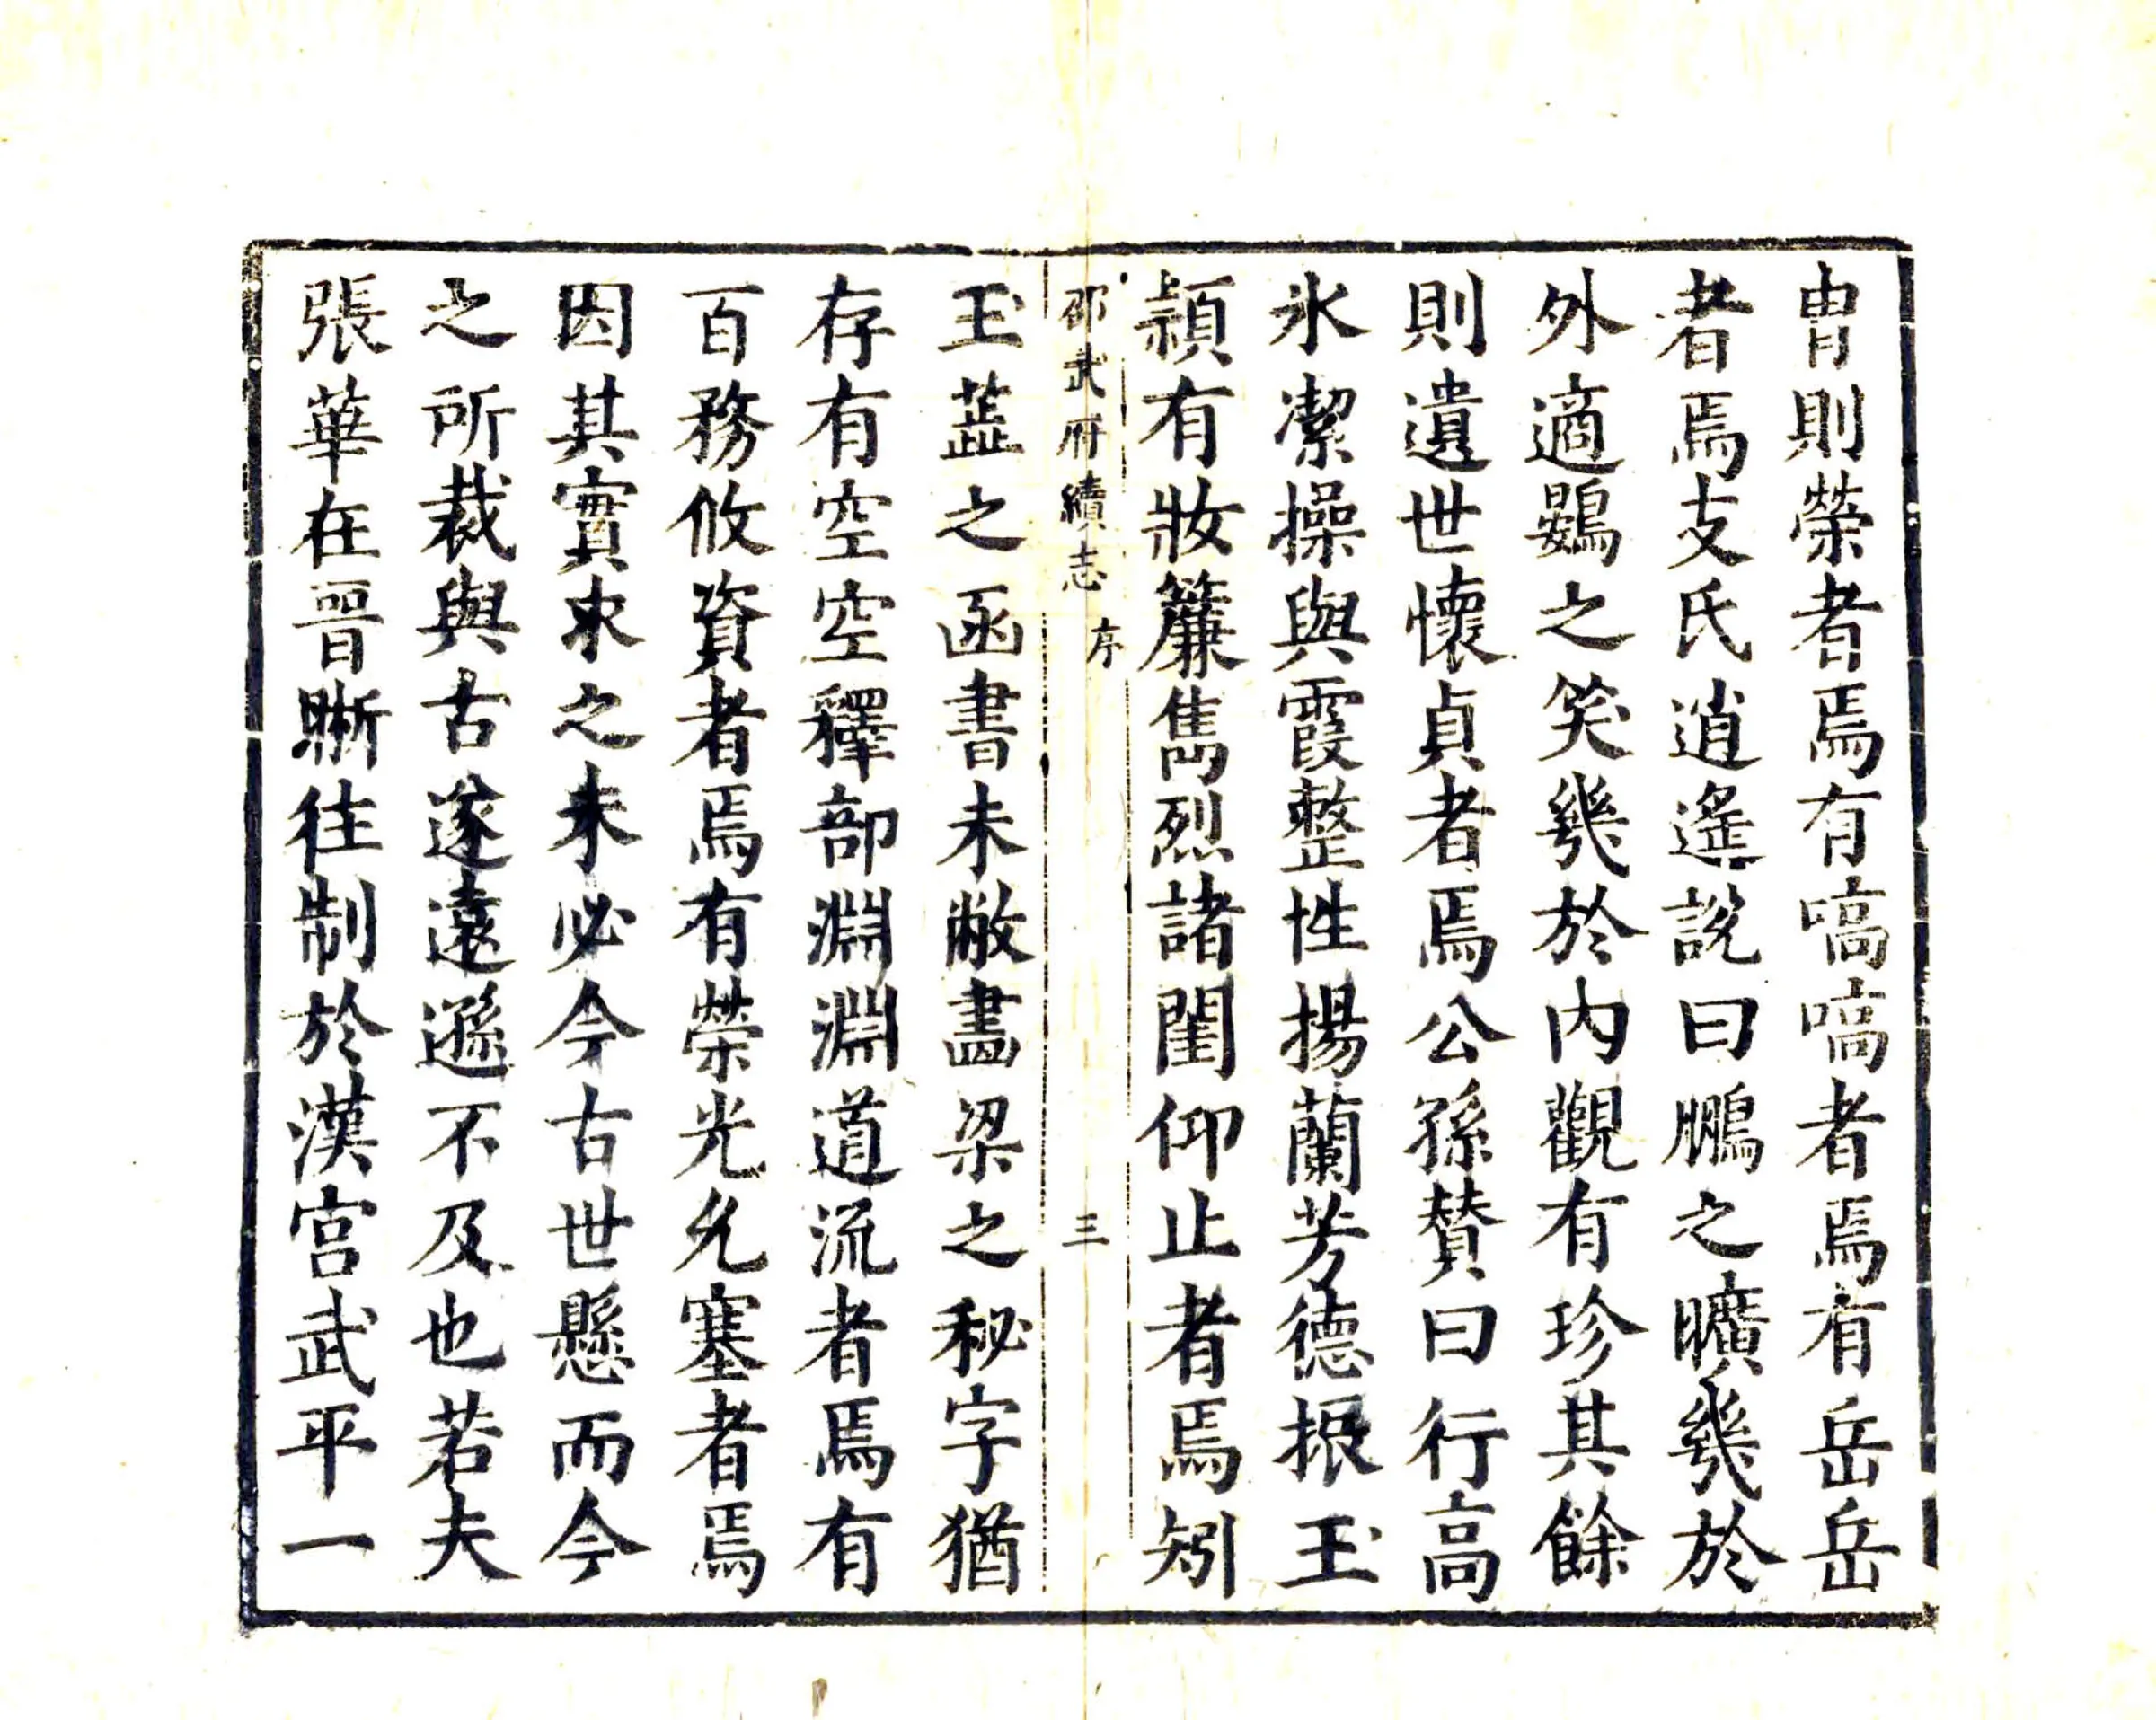 胄則榮者焉有嗃嗃者焉有岳岳
者焉支氏逍遙說曰鵬之曠㡬於
外適鷃之笑㡬於內觀有珍其餘
則遺世懷貞者焉公孫賛曰行高
氷潔操與霞整性揚蘭芳德振玉
頴有妝簾雋烈諸閨仰止者焉矧
邵武府續志 序 三
玉蕋之函書未敝畵梁之秘字猶
存有空空釋部淵淵道流者焉有
百務攸資者焉有榮光允塞者焉
因其實求之未必今古世懸而今
之所裁與古遂遠遜不及也若夫
張華在晋晣往制於漢宮武平一